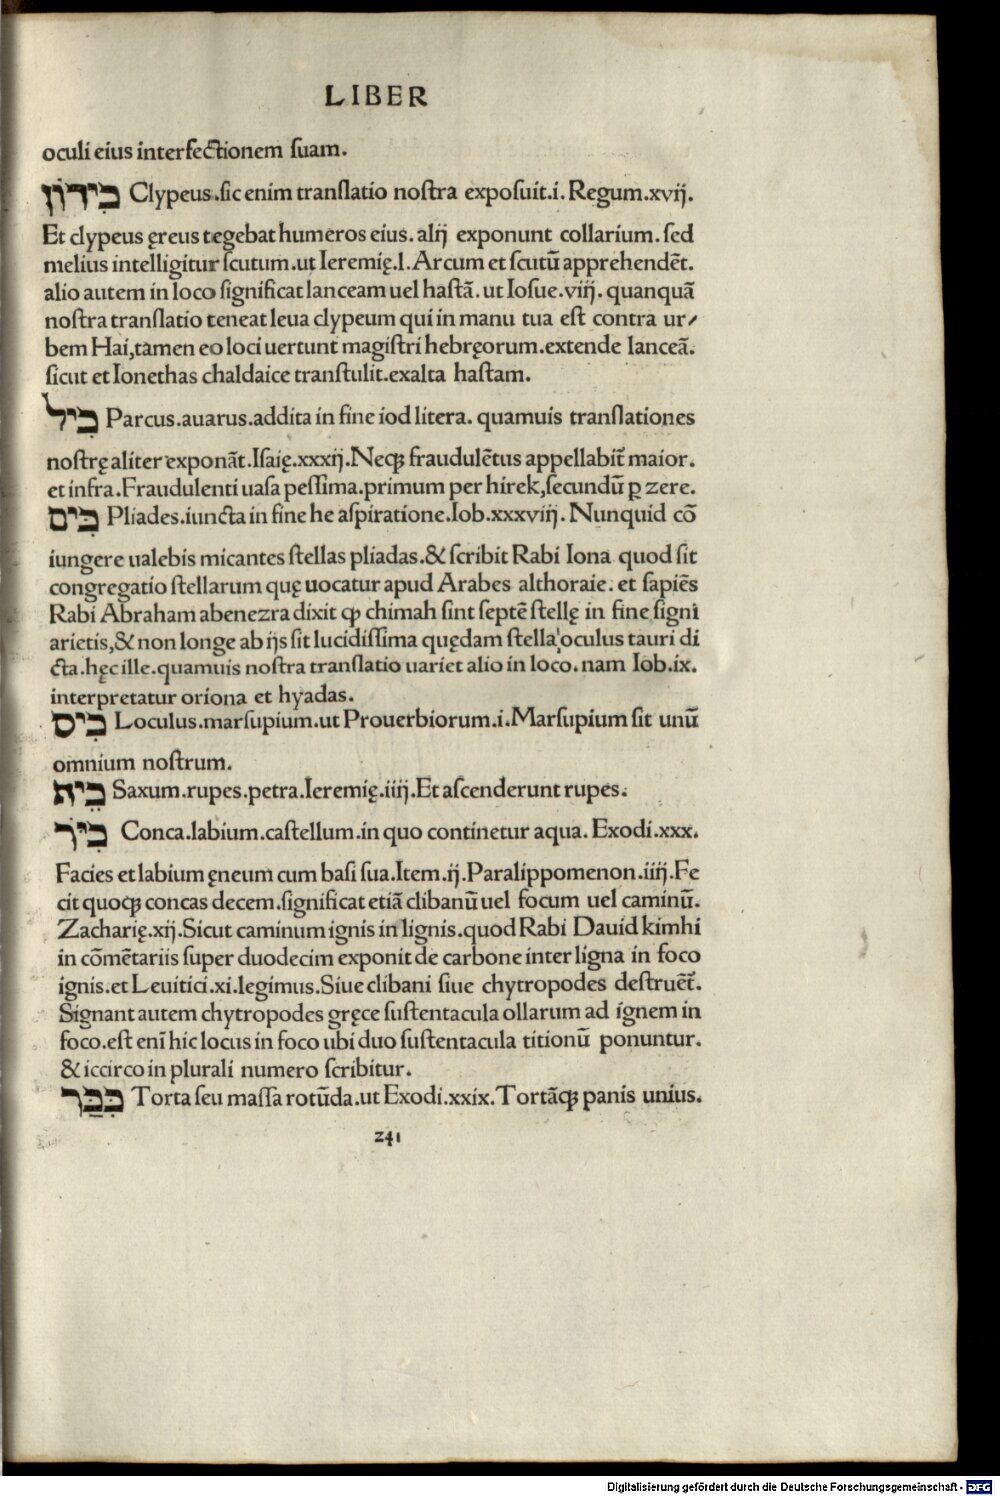 LIBER
oculi eius interfectionem suam.
כִּידוֹן Clypeus.sic enim translatio nostra exposuit.i.Regum.xvij.
Et clypeus ęreus tegebat humeros eius.alij exponunt collarium.sed
melius intelligitur scutum.ut Ieremię.l.Arcum et scutū apprehendēt.
alio autem in loco significat lanceam uel hastā.ut Iosue.viij.quanquā
nostra translatio teneat leua clypeum qui in manu tua est contra ur⸗
bem Hai,tamen eo loci uertunt magistri hebręorum.extende lanceā.
sicut et Ionethas chaldaice transtulit.exalta hastam.
כִּיל Parcus.auarus.addita in fine iod litera.quamuis translationes
nostrę aliter exponāt.Isaię.xxxij.Neqꝫ fraudulētus appellabit̄ maior.
et infra.Fraudulenti uasa pessima.primum per hirek,secundū ꝑ zere.
כִּים Pliades.iuncta in fine he aspiratione.Iob.xxxviij.Nunquid cō
iungere ualebis micantes stellas pliadas.& scribit Rabi Iona quod sit
congregatio stellarum quę uocatur apud Arabes althoraie.et sapiēs
Rabi Abraham abenezra dixit ꝙ chimah sint septē stellę in fine signi
arietis,& non longe ab ijs sit lucidissima quędam stella oculus tauri di
cta.hęc ille.quamuis nostra translatio uariet alio in loco.nam Iob.ix.
interpretatur oriona et hyadas.
כִּיס Loculus.marsupium.ut Prouerbiorum.i.Marsupium sit unū
omnium nostrum.
כֵּית Saxum.rupes.petra.Ieremię.iiij.Et ascenderunt rupes.
כִּיר Conca.labium.castellum.in quo continetur aqua.Exodi.xxx.
Facies et labium ęneum cum basi sua.Item.ij.Paralippomenon.iiij.Fe
cit quoqꝫ concas decem.significat etiā clibanū uel focum uel caminū.
Zacharię.xij.Sicut caminum ignis in lignis.quod Rabi Dauid kimhi
in cōmētariis super duodecim exponit de carbone inter ligna in foco
ignis.et Leuitici.xi.legimus.Siue clibani siue chytropodes destruēt̄.
Signant autem chytropodes gręce sustentacula ollarum ad ignem in
foco.est enī hic locus in foco ubi duo sustentacula titionū ponuntur.
& iccirco in plurali numero scribitur.
כִּכַּר Torta seu massa rotūda.ut Exodi.xxix.Tortāqꝫ panis unius.
241
Digitalisierung gefördert durch die Deutsche Forschungsgemeinschaft - DFG